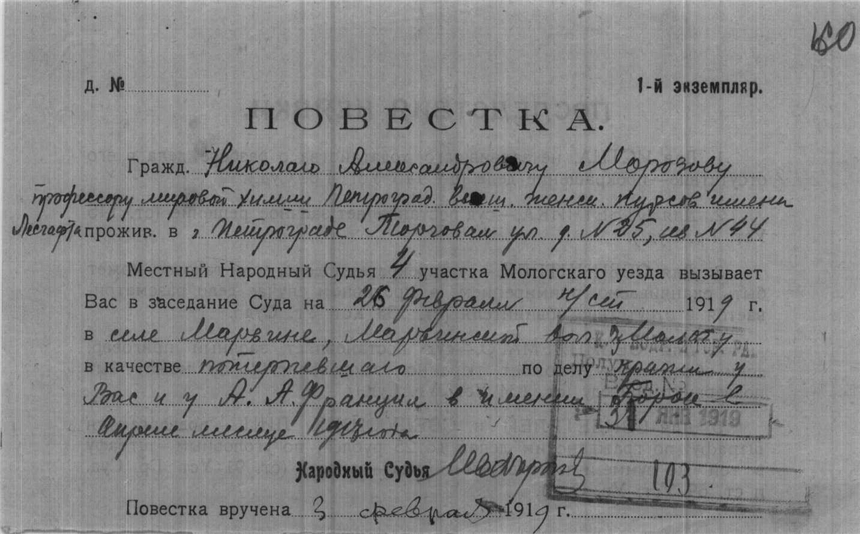 160
д. №
1-й экземпляр.
ПОВЕСТКА.
Гражд. Николаю Александровичу Морозову
профессору мировой химии Петроград. высш. женск. курсов имени
Лесгафта прожив. в г. Петрограде Торговая ул. д. № 25, кв № 44
Местный Народный Судья 4 участка Мологскаго уезда вызывает
Вас в заседание Суда на 26 февраля 1919 г.
в селе Марьине, Марьинской вол.
в качестве потерпевшаго по делу кражи у
Вас и у А. А. в имении Борок в
Апреле месяце
31 ЯНВ 1919
Народный Судья
103
Повестка вручена 3 февраля 1919 г.